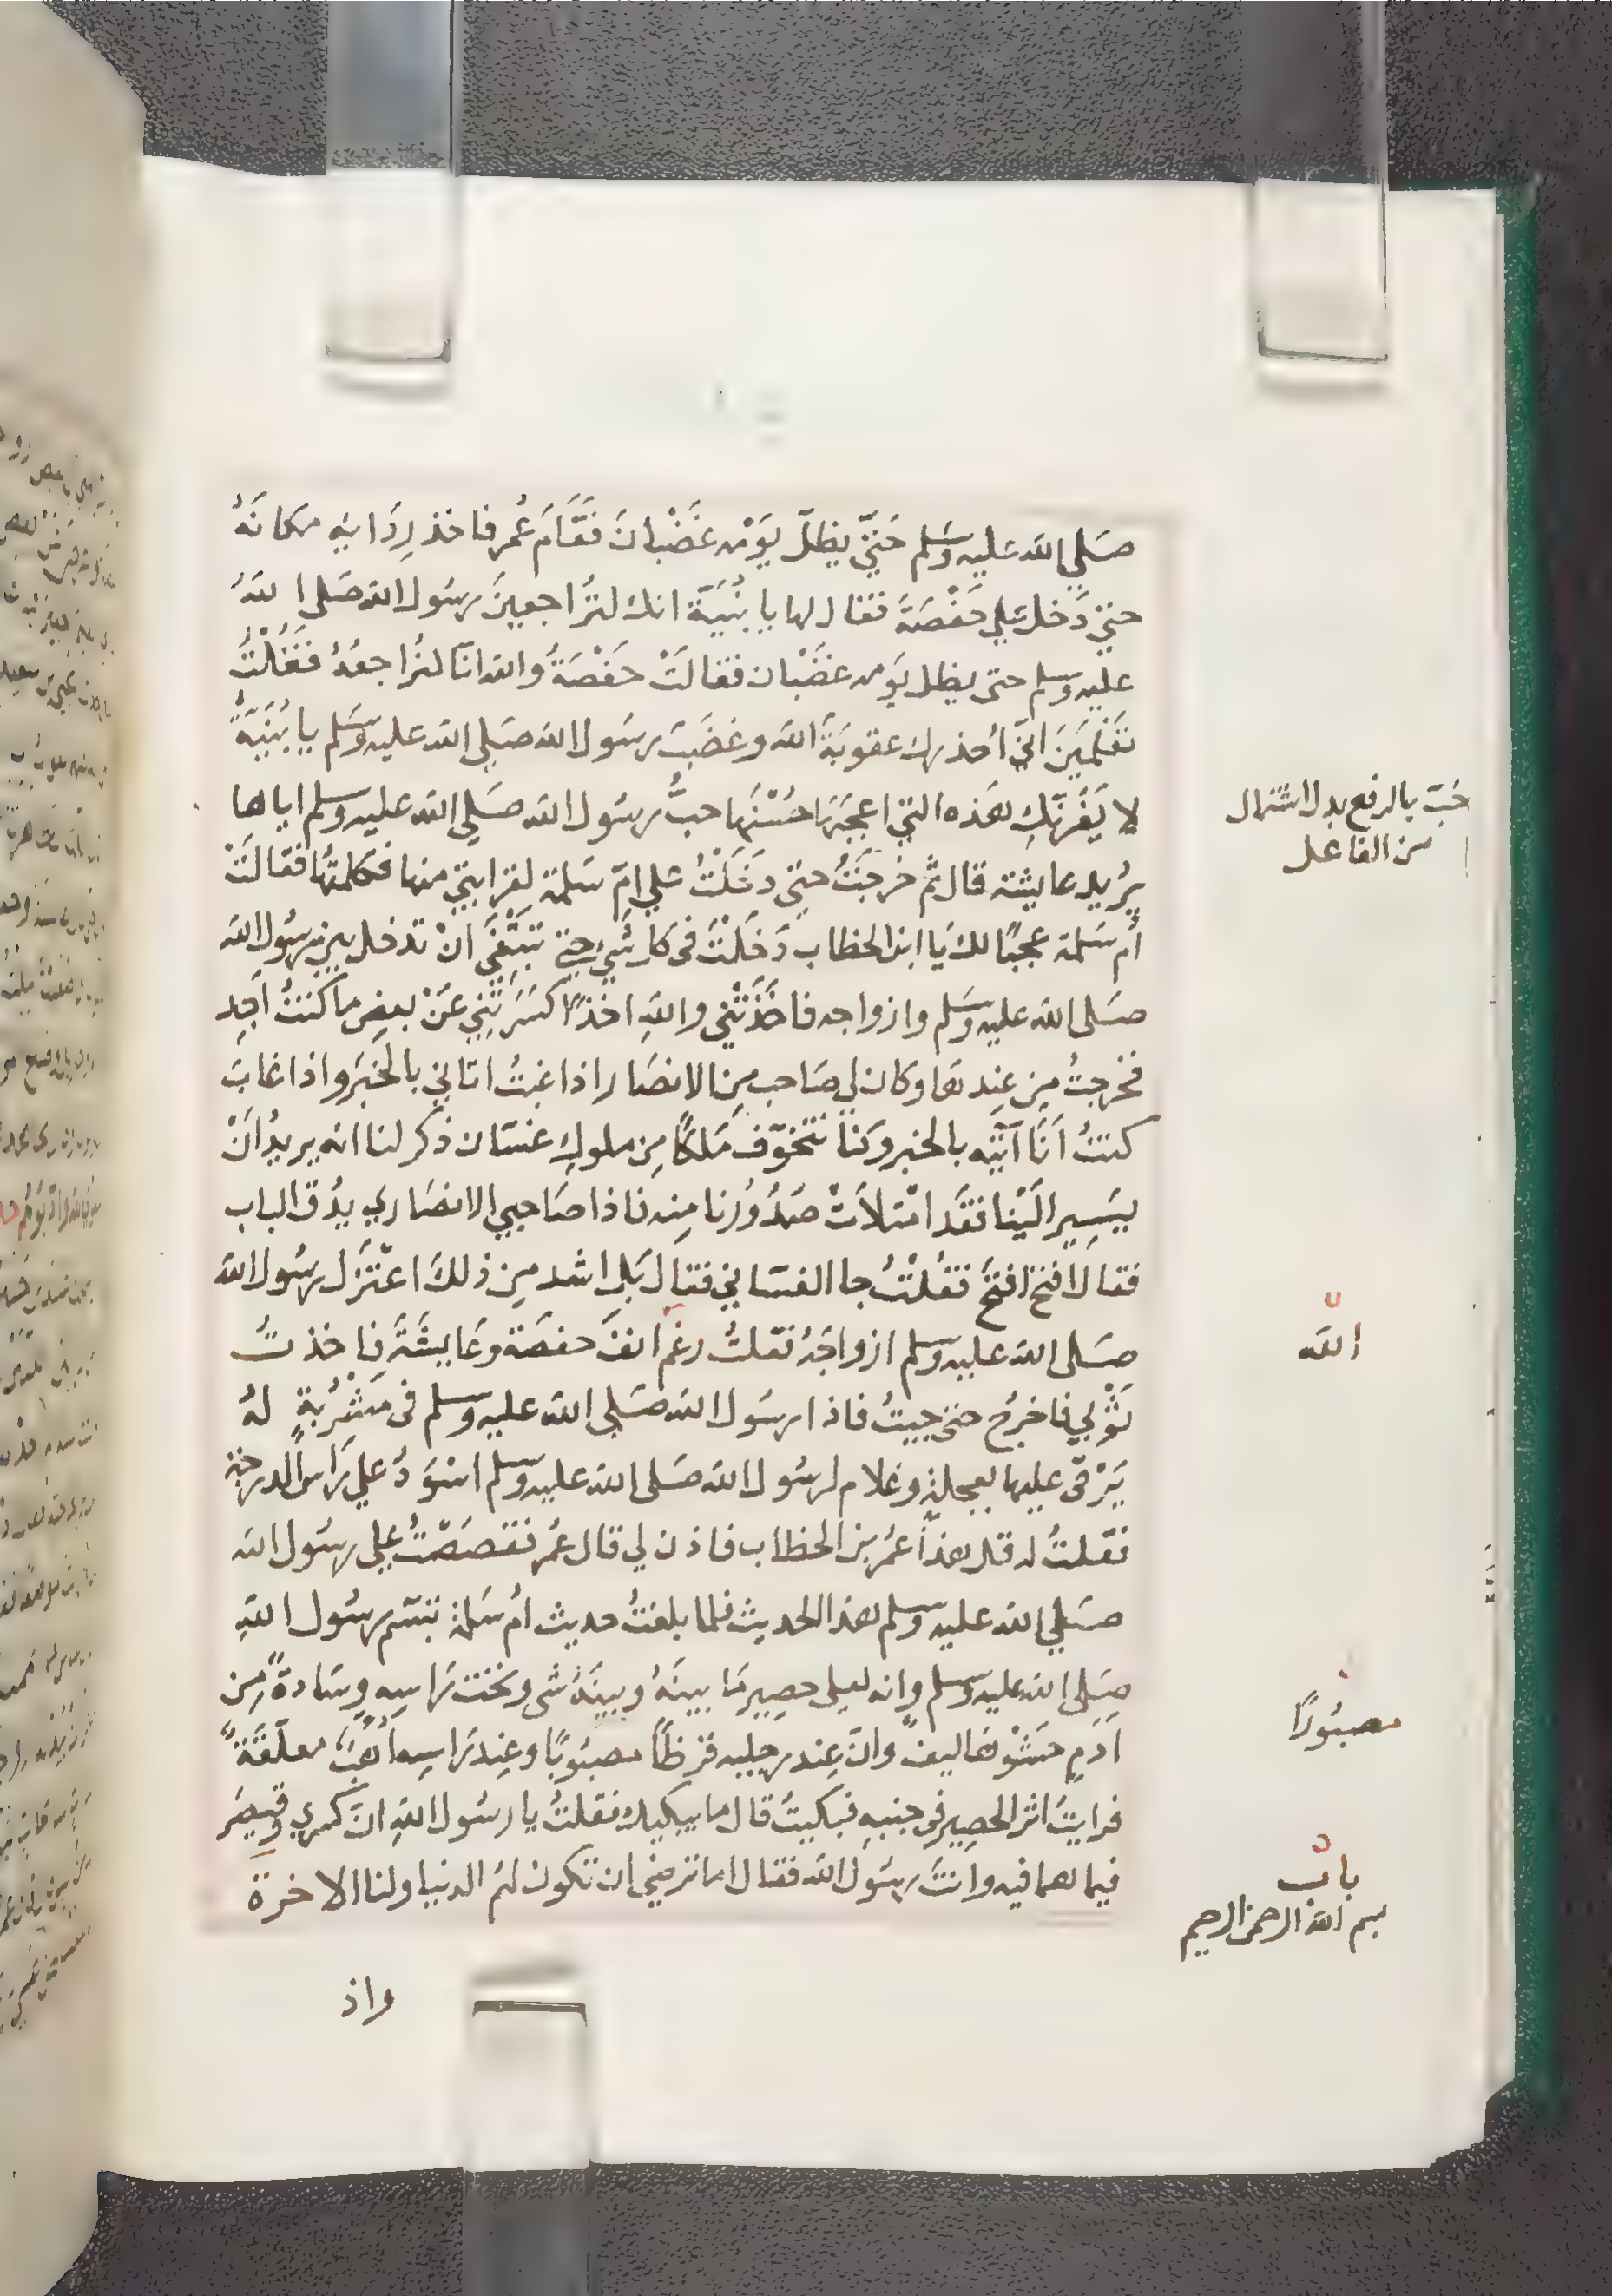 صَلي الله عليه وسَلم حَتيّ يظلّ يَوْمه غَضْبانَ فقَامَ عُمر فاخذ رِدَايه مكانَهُ
حتي دَخل عَلي حَفْصَةَ فقال لها يا بُنيَّة انك لتُراجعينَ رسُول الله صَلى اللهُ
عليه وسلم حتى يظل يَومه غضَبْان فقالَتْ حَفْصَةُ والله انا لنُراجعُهُ فَقُلْتُ
تعْلمينَ انّي اُحذرك عقوبَةَ الله وغضَبَ رسُول الله صَلي الله عليه وسَلم يا بُنيَّةُ
لا يَغُرنّكِ هَذه التي اعجَبَهَا حُسْنُها حبُّ رسُول الله صَلي الله عليه وسلم اياها
يُريد عايشة قال ثم خرجتُ حتي دَخَلْتُ علي امّ سَلمة لِقرابتي منها فكلمتُها فقالَتْ
أم سَلمة عجبًا لك يَا ابن الخطاب دَخَلْتَ فى كل شَيءٍ حتي تَبْتَغي انْ تدخل بين رسُول الله
صَلى الله عليه وسَلم وازواجه فاخَذَتْني والله اخذًا كسَرَتْنِي عَنْ بعضِ ما كنتُ اَجِد
فخرجتُ مِن عِندها وكان لي صَاحب مِن الانصَار اذا غبتُ اتاني بالخبَر واذا غابَ
كنتُ اَنَا آتيه بالخبر وكنا نتخوّف مَلكًا مِن ملوكِ غسّان ذكر لنا انه يريدُ اَنْ
يسِير اِلَيْنا فقَد امْتلأَتْ صُدُورُنا مِنه فاذا صَاحبي الانصَاري يدُق الباب
فقال افتح افتح فقُلْتُ جا الغسّاني فقال بَل اشد مِن ذلك اعْتزَل رسُول الله
صَلى الله عليه وسلم ازواجَهُ فقلتُ رغم انفَ حفصَة وعَايشَةَ فاخذتُ
ثَوْبي فاخرجُ حتى جيتُ فاذا رسُول الله صَلي الله عليه وسلم فى مَشْرُبةٍ لهُ
يَرْقى عليها بعجلةٍ وغلام لرسُول الله صَلى الله عليه وسلم اسْوَدُ علي رَاس الدرجة
فقلتُ له قل هذا عُمر بن الخطاب فاذن لي قال عُمر فقصَصْتُ علي رسُول الله
صَلي الله عليه وسلم هذا الحديث فلما بلغتُ حديث أم سَلمة تبسّم رسُول الله
صَلى الله عليه وسلم وانه لعلى حصِير مَا بينَهُ وبينَهُ شى وتحت رَاسِه وِسَادةٌ مِن
اَدَمٍ حَشْوها ليفٌ وان عِند رجليه قرظًا مصبُوبًا وعِند رَاسِه اُهُبٌ معلّقَةٌ
فرايتُ اثر الحصِير فى جنبهِ فبكيتُ قال ما يبكيك فقلتُ يا رسُول الله انّ كسري وقيصَر
فيما هما فيه وانتَ رسُول الله فقال اما ترضي ان تكون لهُم الدنيا ولنا الاخرة
واذ
حُبّ بالرفع بدل اشتمال
من الفاعل
ن
الله
مصبُورًا
ن
باب
بسم الله الرحمن الرحيم